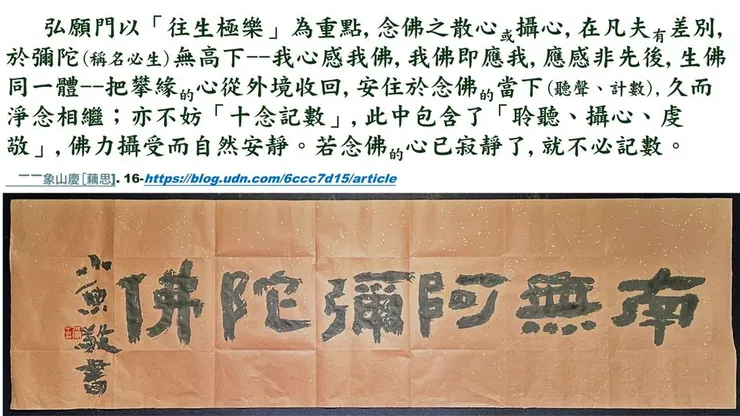 弘願門以「往生極樂」為重點, 念佛之散心或攝心, 在凡夫有差別,
於彌陀(稱名必生)無高下--我心感我佛, 我佛即應我, 應感非先後, 生佛
同一體--把攀緣的心從外境收回, 安住於念佛的當下(聽聲、計數), 久而
淨念相繼；亦不妨「十念記數」, 此中包含了「聆聽、攝心、虔
敬」, 佛力攝受而自然安靜。若念佛的心已寂靜了, 就不必記數。
一一象山慶[藕思]. 16-https://blog.udn.com/6ccc7d15/article
南無阿彌陀佛